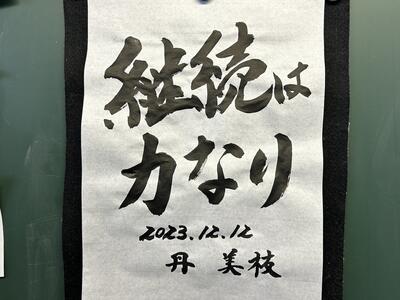 継続は
力なり
2023.12.12
丹 美枝